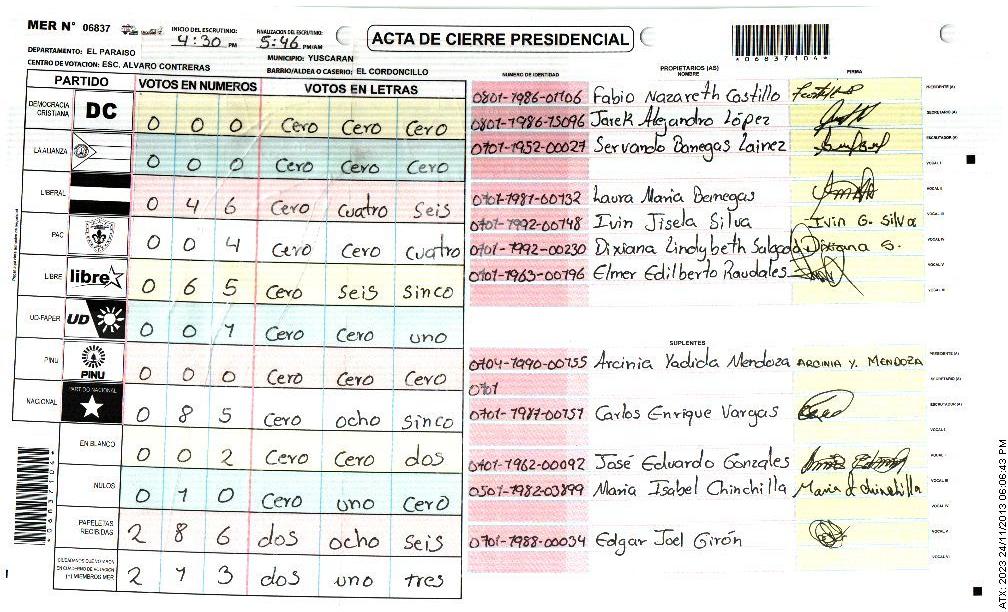 MER N° 06837
INICIO DEL ESCRUTINIO: 4:30 PM
FINALIZACION DEL ESCRUTINIO: 5:46 PM/AM
ACTA DE CIERRE PRESIDENCIAL
*06837104*
DEPARTAMENTO: EL PARAISO
MUNICIPIO: YUSCARAN
CENTRO DE VOTACION: ESC. ALVARO CONTRERAS
BARRIO/ALDEA O CASERIO: EL CORDONCILLO
PARTIDO VOTOS EN NUMEROS VOTOS EN LETRAS
DEMOCRACIA CRISTIANA DC 0 0 0 Cero Cero Cero
LA ALIANZA 0 0 0 Cero Cero Cero
LIBERAL 0 4 6 Cero cuatro seis
PAC 0 0 4 Cero Cero cuatro
LIBRE libre 0 6 5 Cero seis sinco
UD-FAPER UD 0 0 1 Cero Cero uno
PINU PINU 0 0 0 Cero Cero Cero
NACIONAL PARTIDO NACIONAL 0 8 5 Cero ocho sinco
EN BLANCO 0 0 2 Cero Cero dos
NULOS 0 1 0 Cero uno Cero
PAPELETAS RECIBIDAS 2 8 6 dos ocho seis
CIUDADANOS QUE VOTARON EN CUADERNO DE VOTACION (+) MIEMBROS MER 2 1 3 dos uno tres
NUMERO DE IDENTIDAD PROPIETARIOS (AS) NOMBRE FIRMA
0801-1986-01106 Fabio Nazareth Castillo PRESIDENTE (A)
0801-1986-15096 Jarek Alejandro López SECRETARIO (A)
0701-1952-00027 Servando Banegas Lainez ESCRUTADOR (A)
VOCAL I
0701-1981-00132 Laura Maria Benegas VOCAL II
0701-1992-00748 Ivin Jisela Silva Ivin G. Silva VOCAL III
0701-1992-00230 Dixiana Lindybeth Salgado Dixiana S. VOCAL IV
0701-1963-00796 Elmer Edilberto Raudales VOCAL V
SUPLENTES
0704-1990-00155 Arcinia Yadiola Mendoza ARCINIA Y. MENDOZA PRESIDENTE (A)
0701 SECRETARIO (A)
0701-1987-00151 Carlos Enrique Vargas ESCRUTADOR (A)
VOCAL I
0701-1962-00092 José Eduardo Gonzales
0501-1982-03899 Maria Isabel Chinchilla Maria I chinchilla VOCAL III
VOCAL IV
0701-1988-00034 Edgar Joel Girón VOCAL V
*06837104*
ATX: 2023 24/11/2013 06:06:43 PM